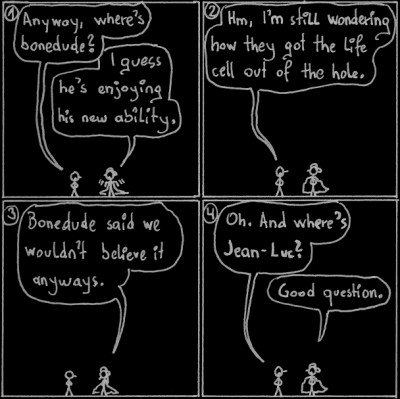 1
Anyway, where's
bonedude?
I guess
he's enjoying
his new ability.
2
Hm, I'm still wondering
how they got the life
cell out of the hole.
3
Bonedude said we
wouldn't believe it
anyways.
4
Oh. And where's
Jean-Luc?
Good question.